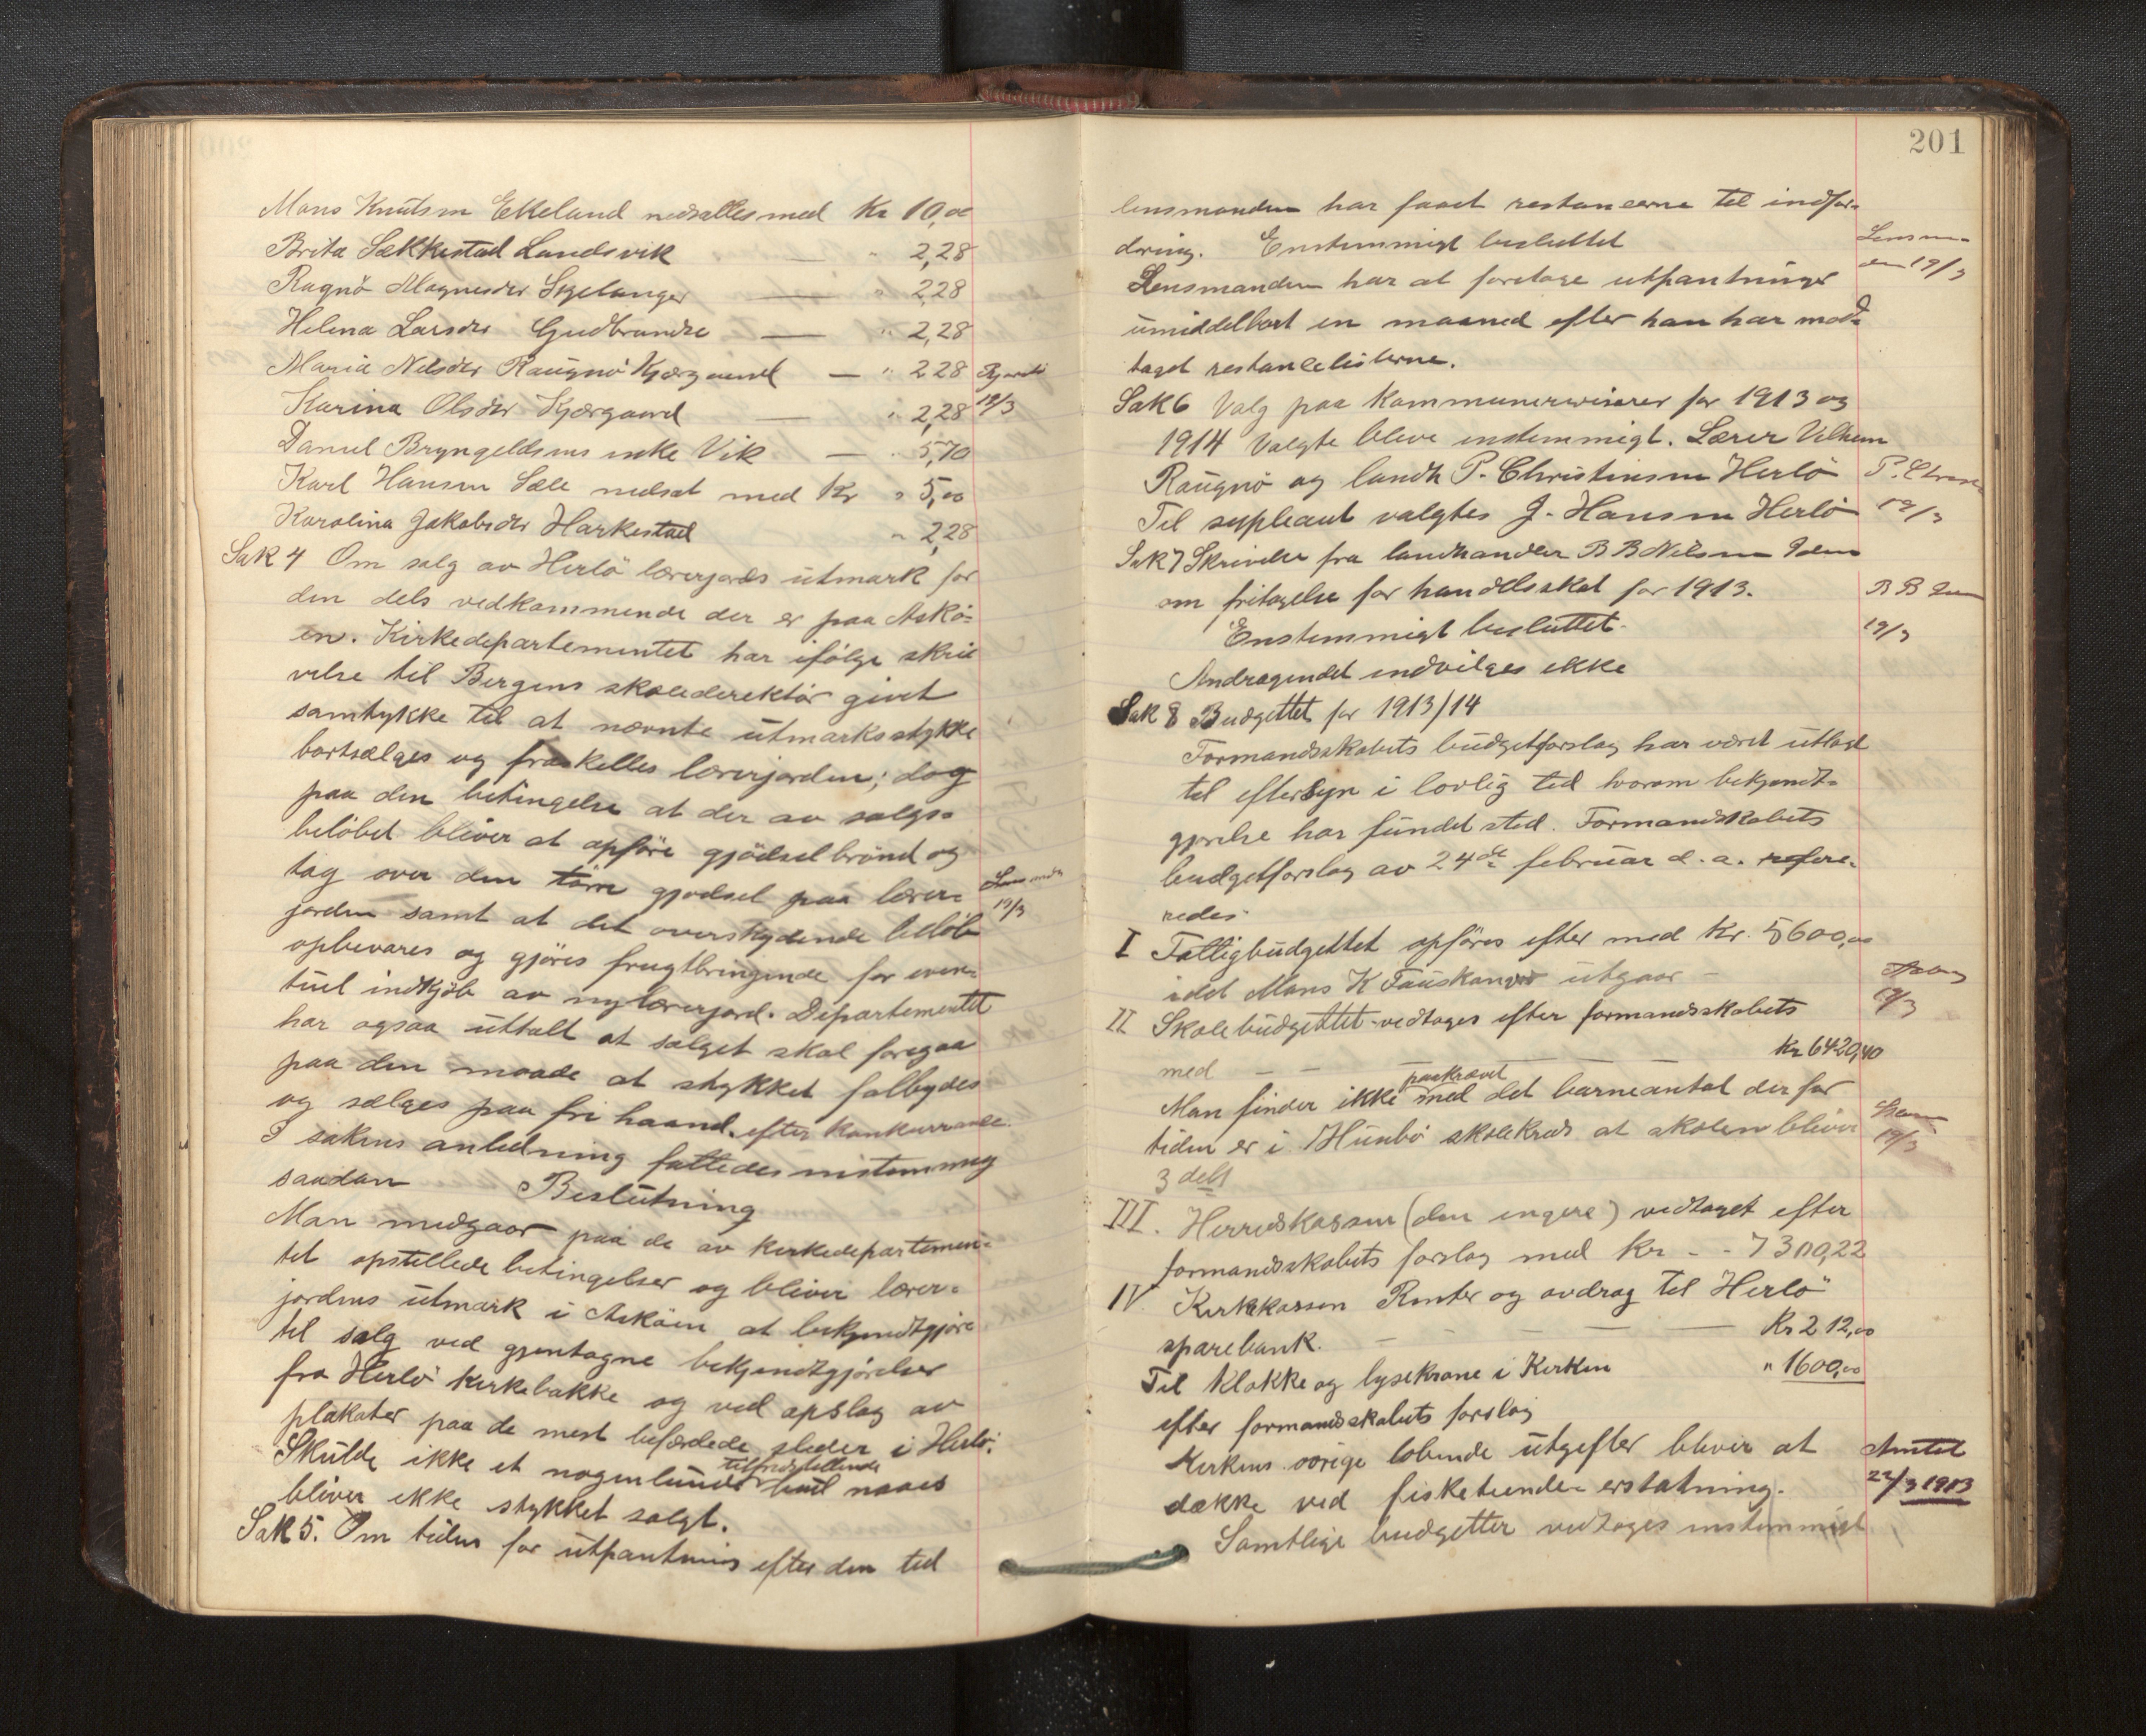 Mons Knutsen Eikeland nedsattes med Kr 10,00
Brita Sækkestad Landsvik — " 2,28
Ragnö Magnesdtr Skjelanger — " 2,28
Helena Larsdtr Gudbrandsö — " 2,28
Maria Nelsdtr Raugnö Kjærgaard — " 2,28
Karina Olsdtr Kjærgaard — " 2,28
19/3
Daniel Bryngeldsens enke Vik — " 5,70
Karl Hansen Sæle nedsat med Kr " 5,00
Karolina Jakobsdtr Harkestad " 2,28
Sak 4 Om salg av Herlö lærerjords utmark for
den dels vedkommende der er paa Askö-
en. Kirkedepartementet har ifölge skri
velse til Bergens skoledirektör givet
samtykke til at nævnte utmarksstykke
bortsælges og fraskilles lærerjorden; dog
paa den betingelse at der av salgs-
belöbet bliver at opföre gjödselbrönd og
tag over den törre gjödsel paa lærer-
jorden samt at det overskydende belöb
19/3
opbevares og gjöres frugtbringende for even-
tuel indkjöb av ny lærerjord. Departementet
har ogsaa uttalt at salget skal foregaa
paa den maade at stykket falbydes
og sælges paa fri haand efter konkurranse.
I sakens anledning fattedes enstemmig
saadan Beslutning
Man medgaar paa de av kirkedepartemen-
tet opstillede betingelser og bliver lærer-
jordens utmark i Asköen at bekjendtgjöre
til salg ved gjentagne bekjendtgjörelser
fra Herlö kirkebakke og ved opslag av
plakater paa de mest befærdede steder i Herlö.
Skulde ikke et nogenlunde tilfredsstillende bud naaes
bliver ikke stykket solgt.
Sak 5. Om tiden for utpantning efter den tid
201
lensmanden har faaet restancerne til indfor-
dring. Enstemmigt besluttet
Lensman-
den 19/3
Lensmanden har at foretage utpantninger
umiddelbart en maaned efter han har mod-
taget restancelisterne.
Sak 6 Valg paa kommunerevisorer for 1913 og
1914 Valgte bleve enstemmigt. Lærer Vilhem
Raugnö og landh P. Christensen Herlö
Til supleant valgtes J. Hansen Herlö
19/3
Sak 7 Skrivelse fra landhandler B B Nilsen
om fritagelse for handelsskat for 1913.
B B
Enstemmigt besluttet.
19/3
Andragendet indvilges ikke
Sak 8 Budgettet for 1913/14
Formandsskabets budgetforslag har været utlagt
til eftersyn i lovlig tid hvorom bekjendt-
gjörelse har fundet sted. Formandskabets
budgetforslag av 24de februar d. a. refere-
redes.
I Fattigbudgettet opföres efter med Kr. 5600,00
idet Mons K Fauskanger utgaar —
19/3
II Skolebudgettet vedtages efter formandsskabets
med — — — Kr 6420,40
Man finder ikke paakrævet med det barneantal der for
tiden er i Hunbö skolekreds at skolen bliver
19/3
3 delt
III. Herredskassen (den engere) vedtaget efter
formandsskabets forslag med Kr - - 7300,22
IV. Kirkekassen Renter og avdrag til Herlö
sparebank. — — — Kr 212,00
Til Klokke og lysekrone i Kirken " 1600,00
efter formandsskabets forslag
Kirkens övrige löbende utgifter bliver at
Amtet
22/3 1913
dække ved fisketiende-erstatning.
Samtlige budgetter vedtages enstemmigt